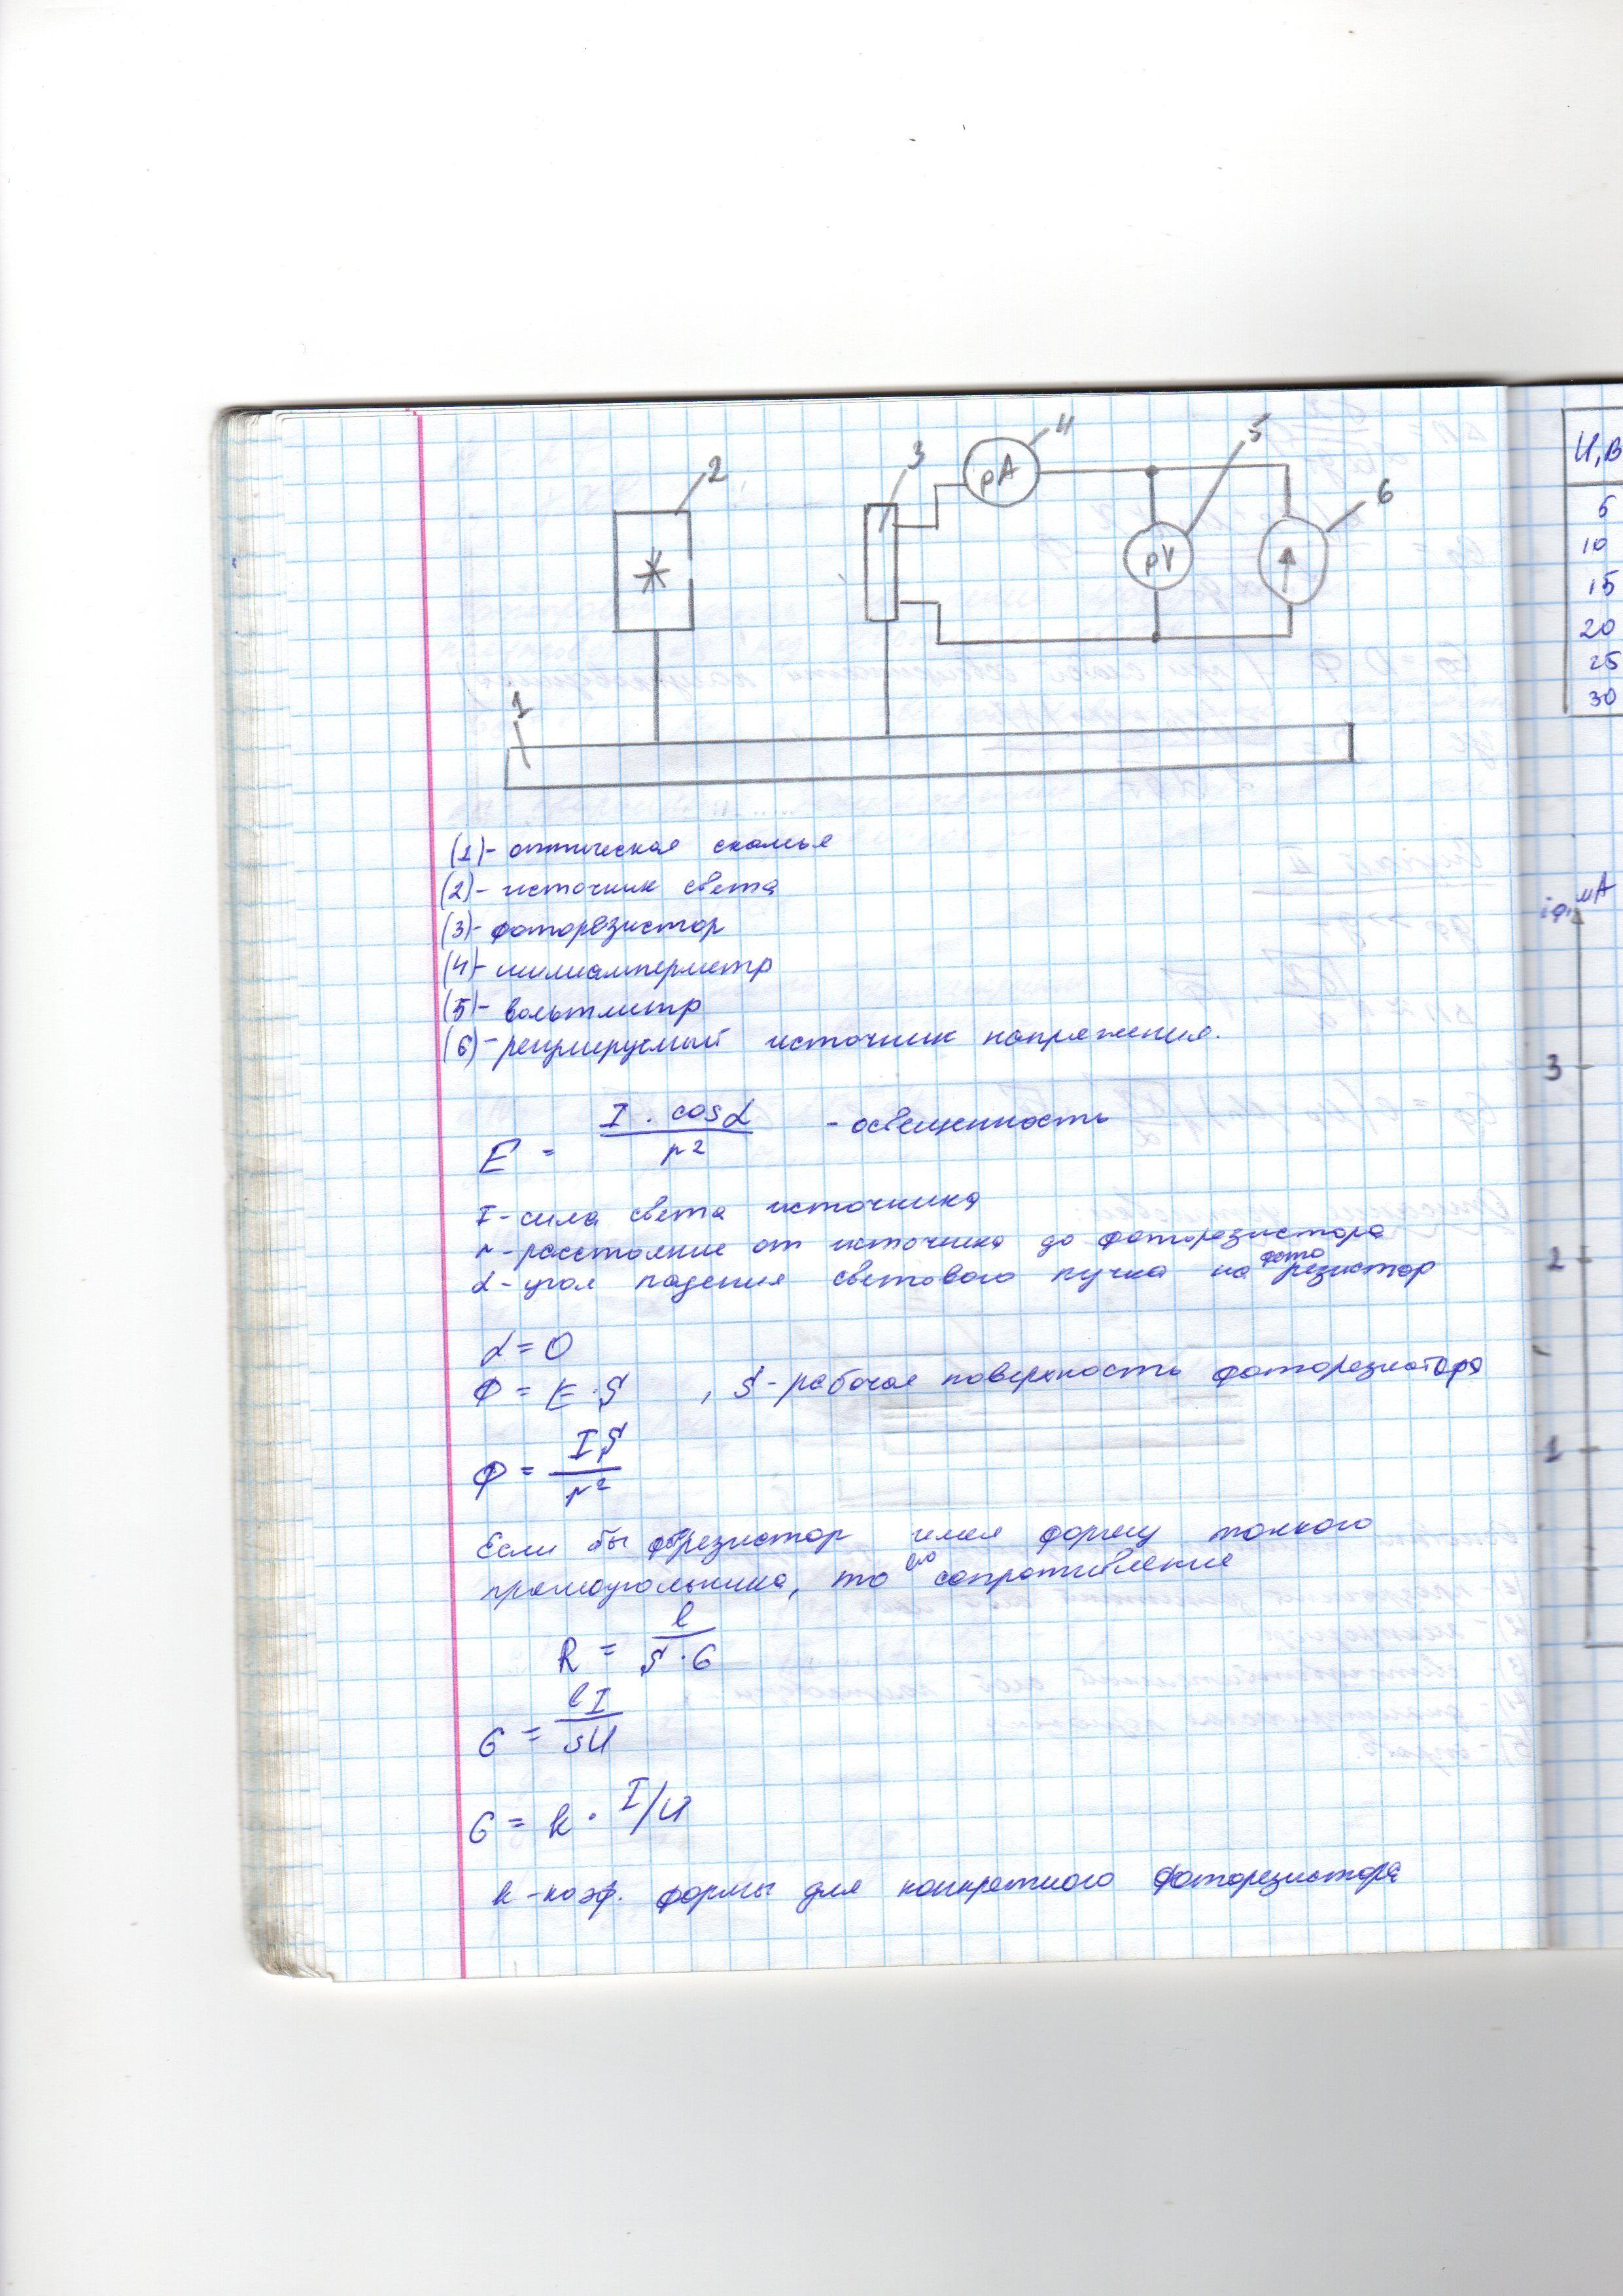 2
3
4
5
6
pA
pV
1
(1)- оптическая скамья
(2)- источник света
(3)- фоторезистор
(4)- милиамперметр
(5)- вольтметр
(6)- регулируемый источник напряжения.
E = I · cosα / r² - освещенность
I - сила света источника
r - расстояние от источника до фоторезистора
α - угол падения светового пучка на фоторезистор
α = 0
Ф = E · S , S - рабочая поверхность фоторезистора
Ф = IS / r²
Если бы резистор имел форму тонкого
прямоугольника, то его сопротивление
R = l / S · G
G = lI / SU
G = k · I/U
k - коэф. формы для конкретного фоторезистора
U, В
5
10
15
20
25
30
iф, мА
3
2
1